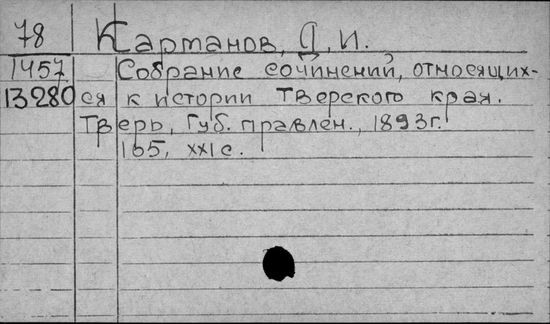 78 Карманов, Д. И.
1457 Собрание сочинений, относящих-
13280 ся к истории Тверского края.
Тверь, Губ. правлен., 1893г.
165, XXI с.